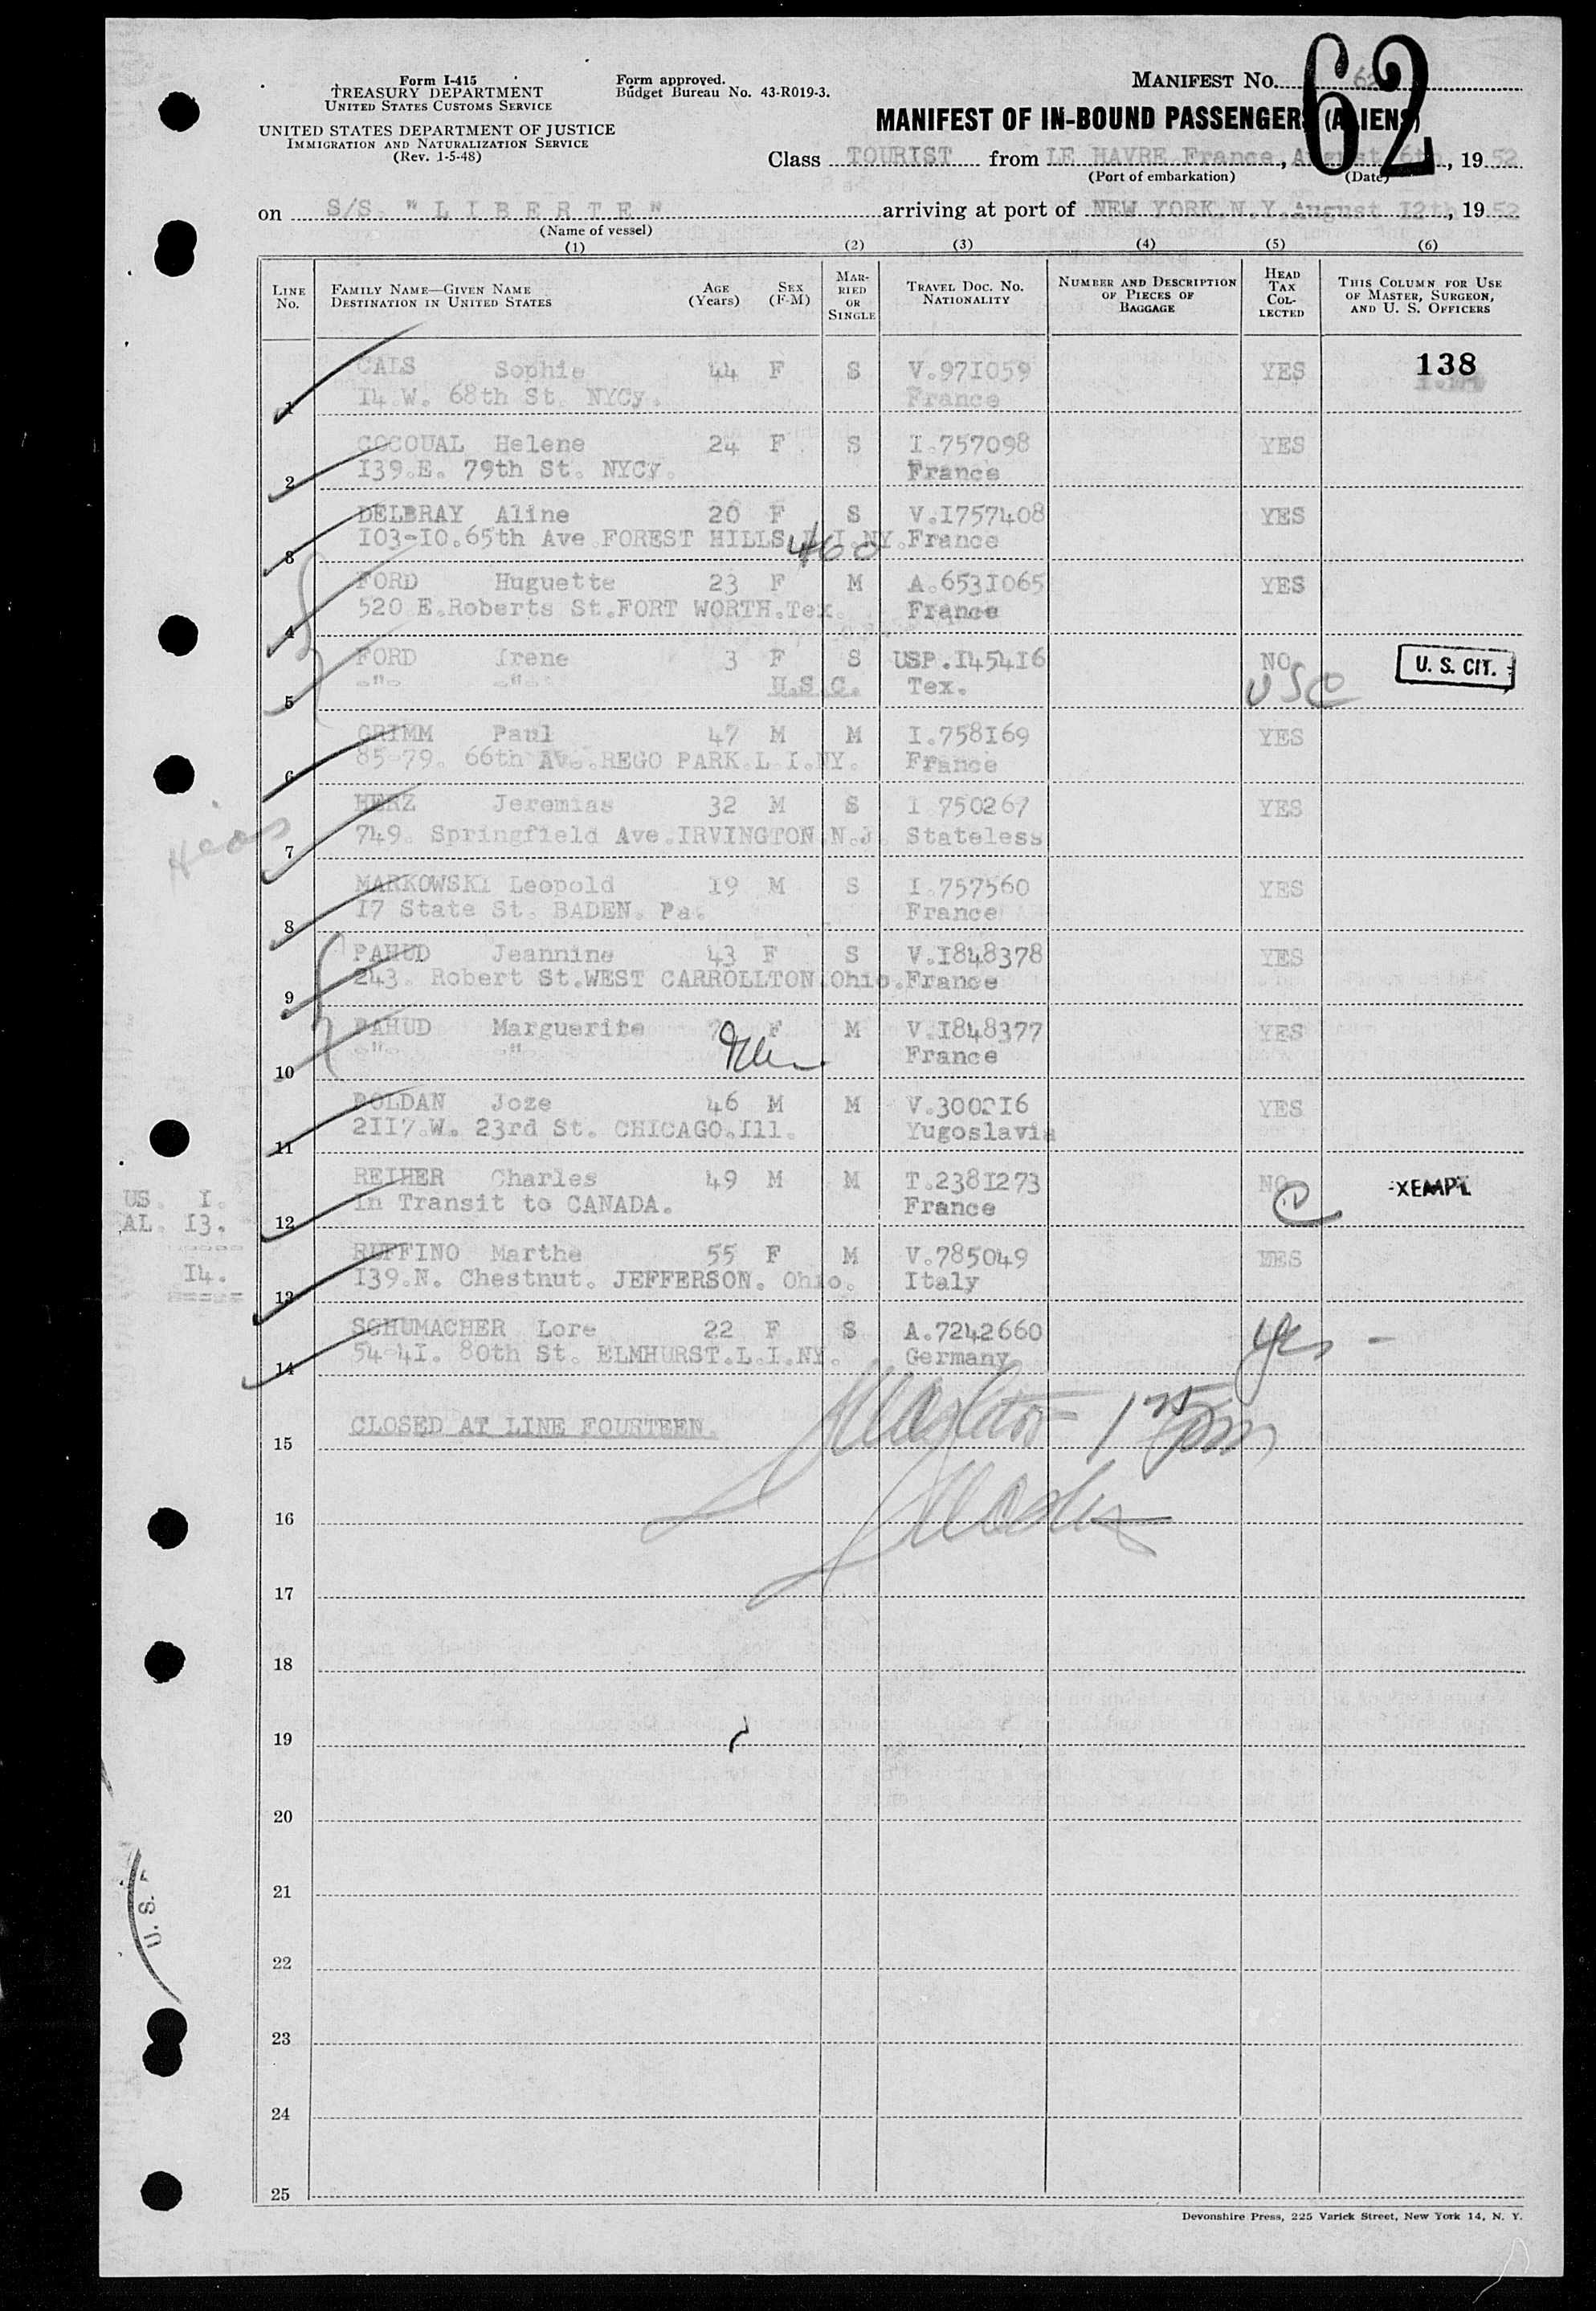 Form I-415
TREASURY DEPARTMENT
UNITED STATES CUSTOMS SERVICE
UNITED STATES DEPARTMENT OF JUSTICE
IMMIGRATION AND NATURALIZATION SERVICE
(Rev. 1-5-48)
Form approved.
Budget Bureau No. 43-R019-3.
MANIFEST No. 62
62
MANIFEST OF IN-BOUND PASSENGERS (ALIENS)
Class TOURIST from LE HAVRE France, August 6th, 19 52
(Port of embarkation) (Date)
on S/S. "L I B E R T E" arriving at port of NEW YORK.N.Y.August 12th, 19 52
(Name of vessel)
(1) (2) (3) (4) (5) (6)
LINE No. FAMILY NAME—GIVEN NAME DESTINATION IN UNITED STATES AGE (Years) SEX (F-M) MARRIED OR SINGLE TRAVEL DOC. NO. NATIONALITY NUMBER AND DESCRIPTION OF PIECES OF BAGGAGE HEAD TAX COLLECTED THIS COLUMN FOR USE OF MASTER, SURGEON, AND U. S. OFFICERS
CALS Sophie 44 F S V.971059 YES 138
1 14.W. 68th St. NYCy. France
COCOUAL Helene 24 F S I.757098 YES
2 139.E. 79th St. NYCy. France
DELBRAY Aline 20 F S V.1757408 YES
3 103-10.65th Ave.FOREST HILLS.L.I.NY.France
460
FORD Huguette 23 F M A.6531065 YES
4 520 E.Roberts St.FORT WORTH.Tex. France
FORD Irene 3 F S USP.145416 NO U. S. CIT.
5 -"- -"- U.S.C. Tex. USC
GRIMM Paul 47 M M I.758169 YES
6 85-79. 66th Ave.REGO PARK.L.I.NY. France
HERZ Jeremias 32 M S I 750267 YES
7 749. Springfield Ave.IRVINGTON.N.J. Stateless
MARKOWSKI Leopold 19 M S I.757560 YES
8 17 State St. BADEN. Pa. France
PAHUD Jeannine 43 F S V.1848378 YES
9 243. Robert St.WEST CARROLLTON.Ohio.France
PAHUD Marguerite F M V.1848377 YES
10 -"- -" France
POLDAN Joze 46 M M V.300216 YES
11 2117.W. 23rd St. CHICAGO.Ill. Yugoslavia
REIHER Charles 49 M M T.2381273 NO EXEMPT
12 In Transit to CANADA. France
US. 1.
AL. 13.
14.
RUFFINO Marthe 55 F M V.785049 YES
13 139.N. Chestnut. JEFFERSON. Ohio. Italy
SCHUMACHER Lore 22 F S A.7242660 yes -
14 54-41. 80th St. ELMHURST.L.I.NY. Germany
15 CLOSED AT LINE FOURTEEN.
16
17
18
19
20
21
22
23
24
25
U. S.
Devonshire Press, 225 Varick Street, New York 14, N. Y.